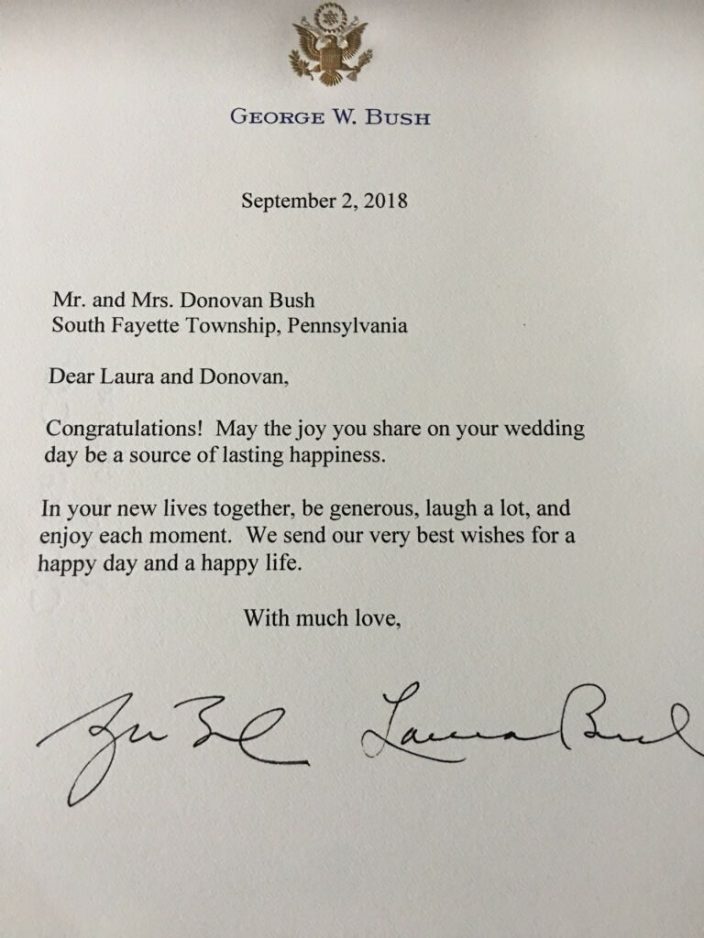 GEORGE W. BUSH
September 2, 2018
Mr. and Mrs. Donovan Bush
South Fayette Township, Pennsylvania
Dear Laura and Donovan,
Congratulations!  May the joy you share on your wedding
day be a source of lasting happiness.
In your new lives together, be generous, laugh a lot, and
enjoy each moment.  We send our very best wishes for a
happy day and a happy life.
With much love,
Laura Bush